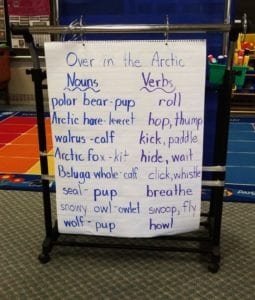 Over in the Arctic
Nouns Verbs
polar bear-pup roll
Arctic hare-leveret hop, thump
walrus-calf kick, paddle
Arctic fox-kit hide, wait
Beluga whale-calf click, whistle
seal-pup breathe
snowy owl-owlet swoop, fly
wolf-pup howl